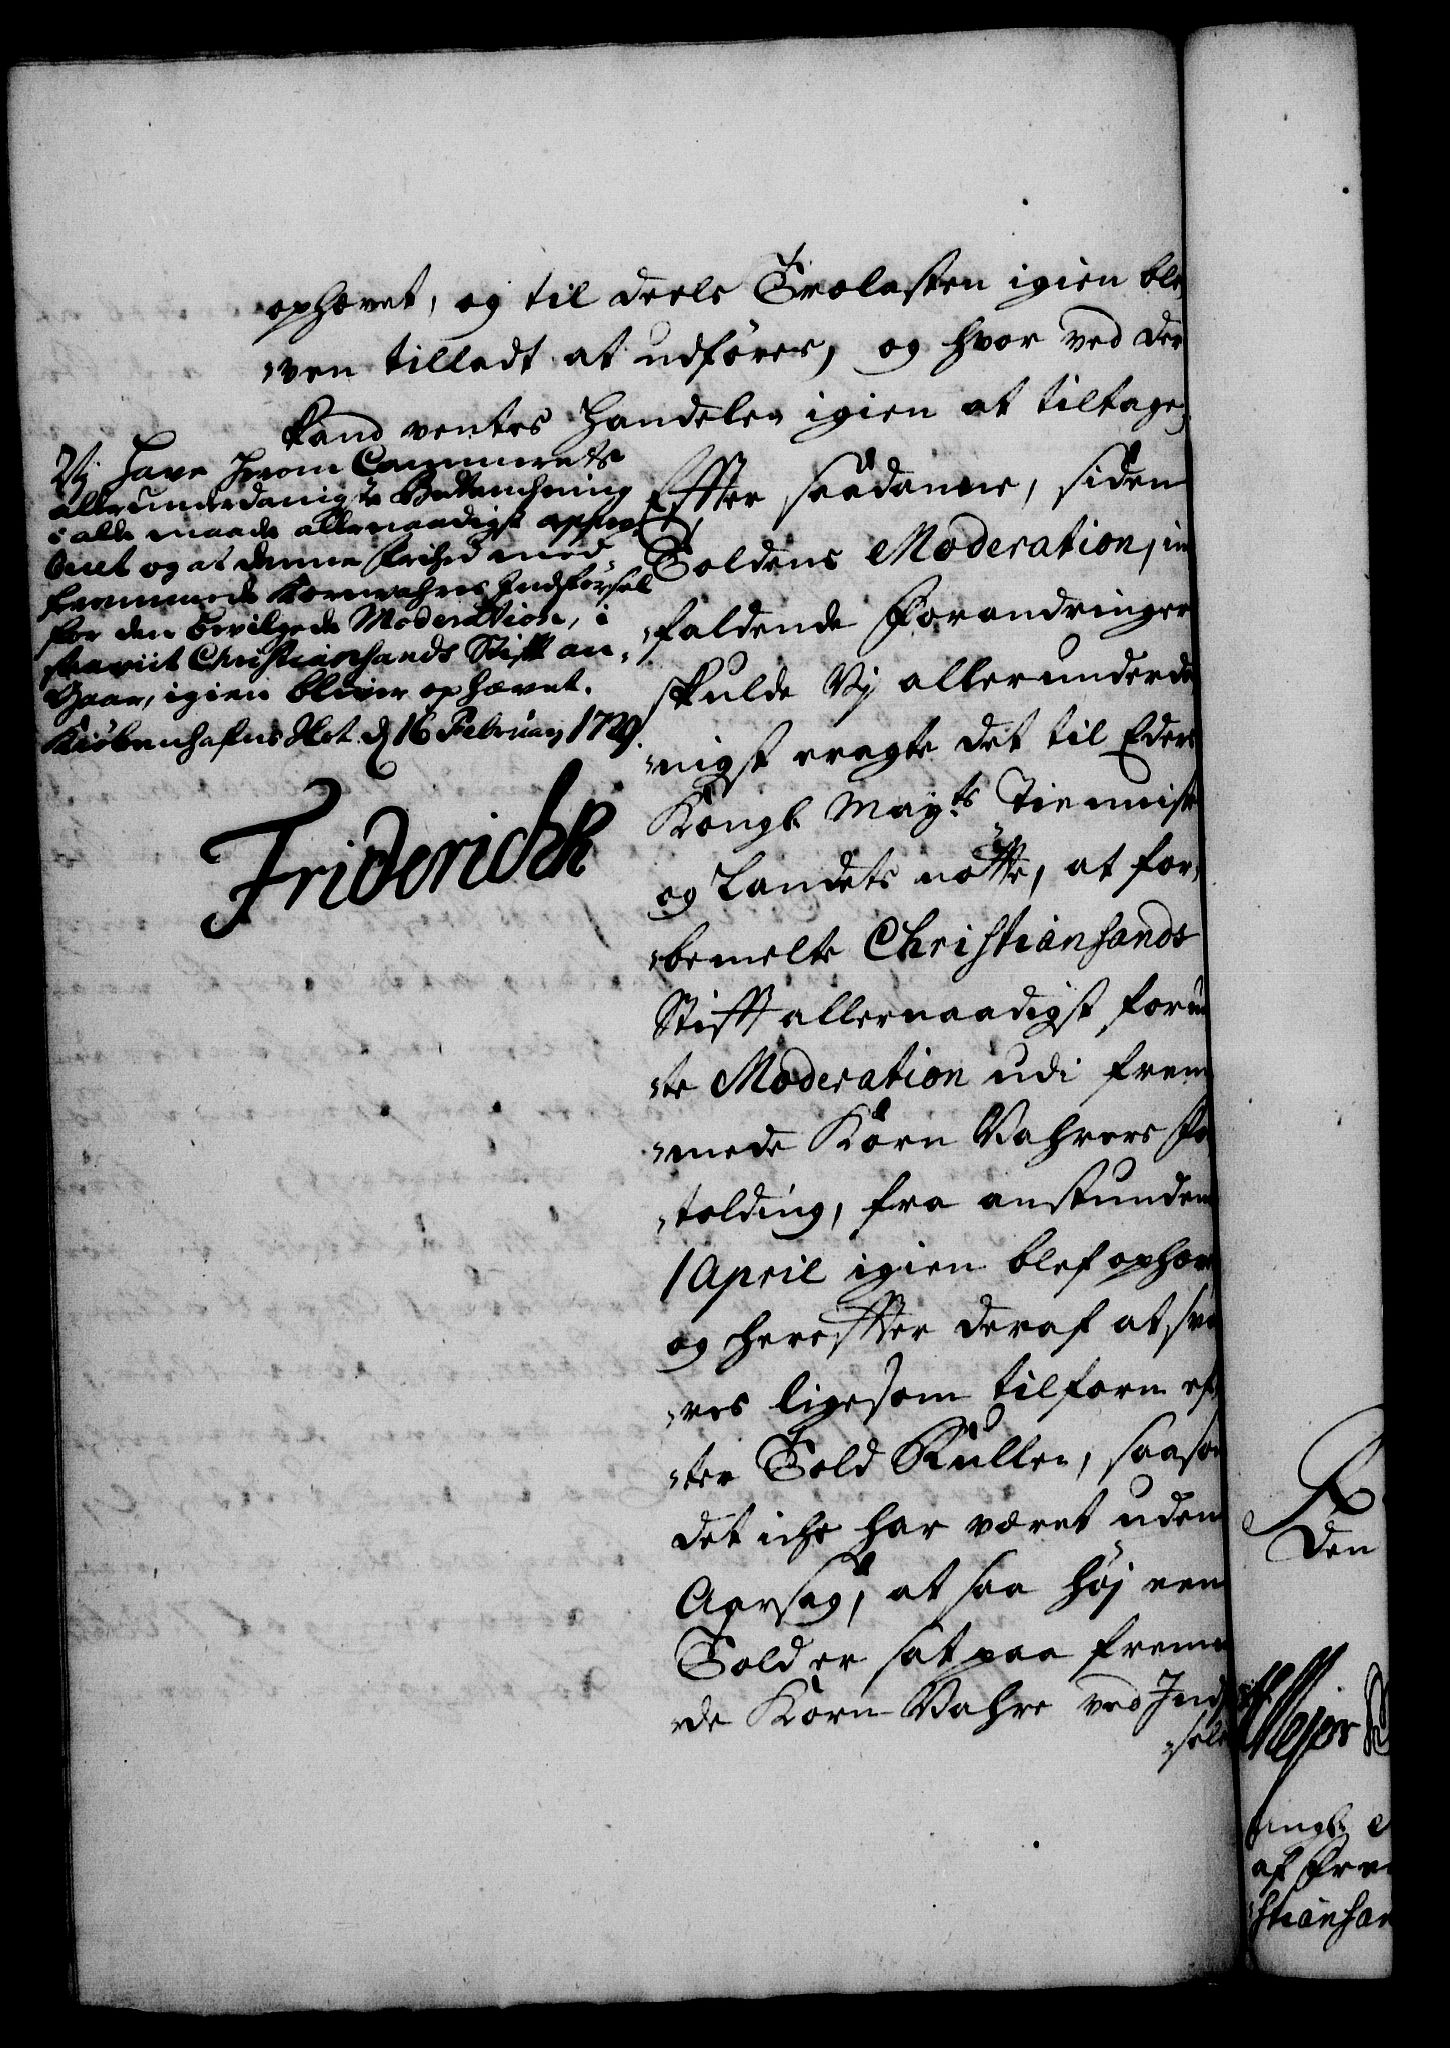 ophævet, og til deels Trælasten igien ble,
„ven tilladt at udføres, og hvor ved der
kand ventes Handelen igien at tiltage,
Effter saadanne, siden
Toldens Moderation, in
„faldende Forandringer
skulde Vi allerunderda
„nigst eragte det til Eders
Kongl. Mayts Tienniste
og Landets nøtte, at for,
„bemelte Christiansands
Stifft allernaadigst forun
„te Moderation udi frem
„mede Korn Vahrers For
„tolding, fra anstundende
1 April igien blef ophæv
og hereffter deraf at sva
„res ligesom tilforn ef,
„ter Told Rullen, saasom
det iche har været uden
Aarsag, at saa høj een
Told er sat paa fremme
„de Korn Vahre ved Ind
„sele
Vj Have herom Cammerets
allerunderdanigste Betenchning
i alle maade allernaadigst appro,
beret og at denne frihed med
fremmede Kornvahres Indførsel
for den bevilgede Moderation, i
saaviit Christiansands Stifft an,
Gaar, igien bliver ophævet.
Kiöbenhafns Slot d. 16 Februarj 1729
Friderich R
Den
Kongl.
af Fre
stiansan